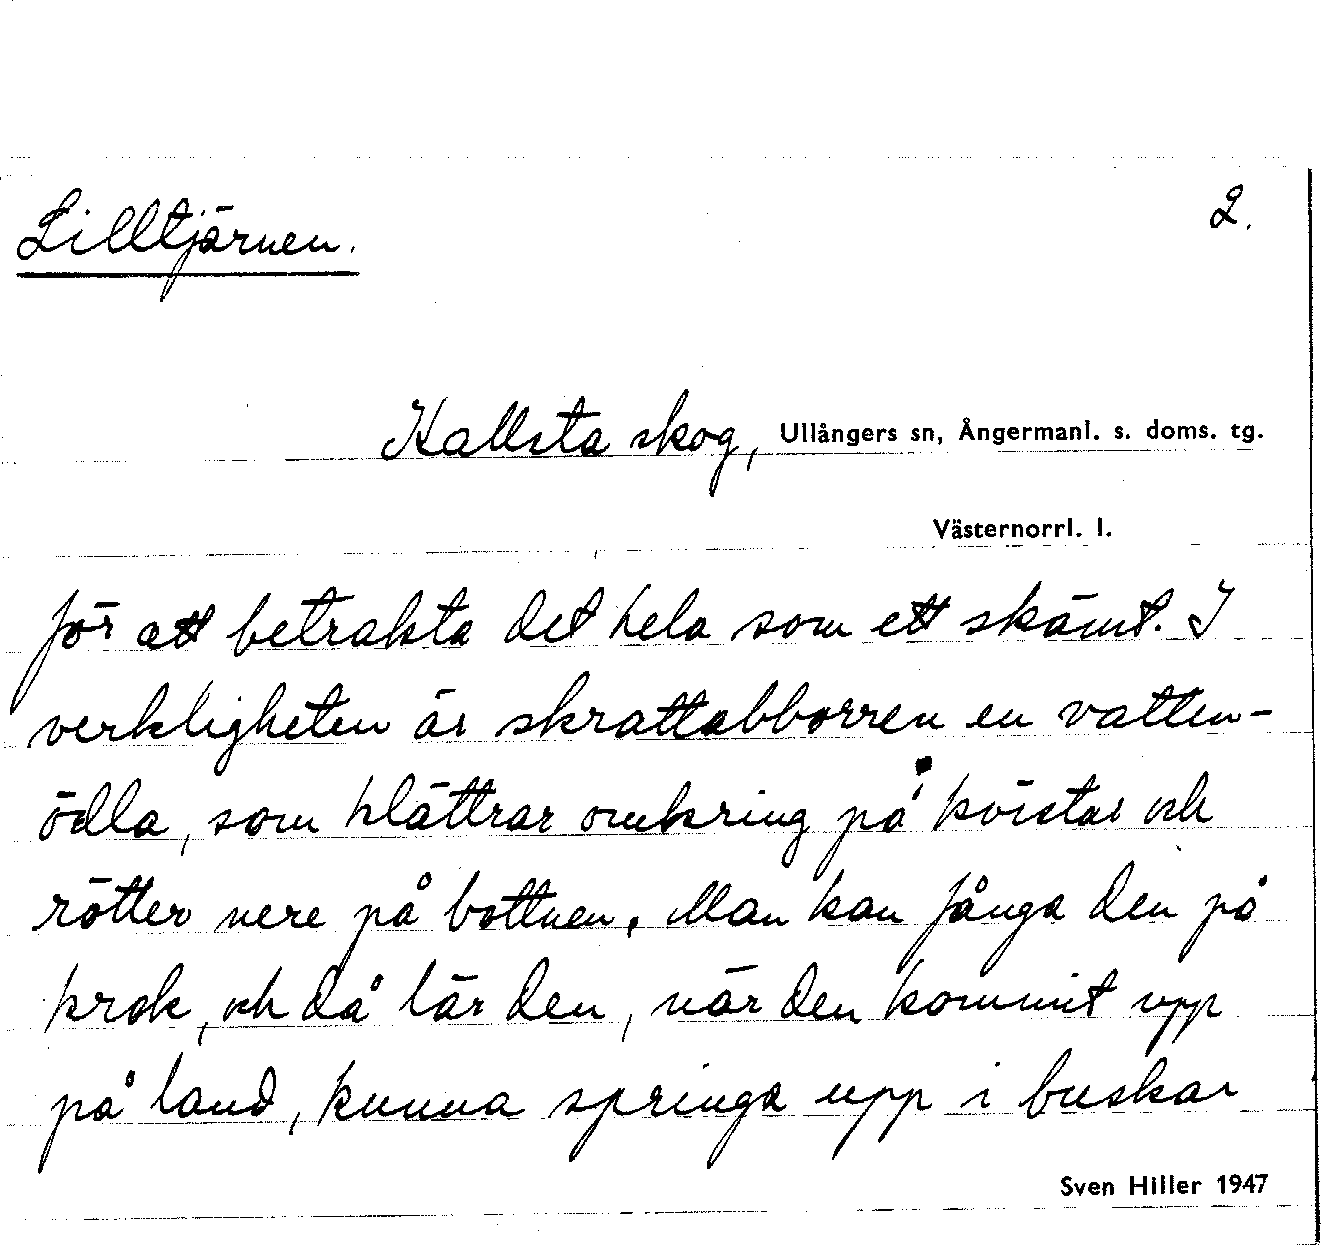 Lilltjärnen.
2.
Kallsta skog, Ullångers sn, Ångermanl. s. doms. tg.
Västernorrl. l.
för att betrakta det hela som ett skämt. I
verkligheten är skrattabborren en vatten-
ödla, som klättrar omkring på kvistar och
rötter nere på bottnen. Man kan fånga den på
krok, och då lär den, när den kommit upp
på land, kunna springa upp i buskar
Sven Hiller 1947